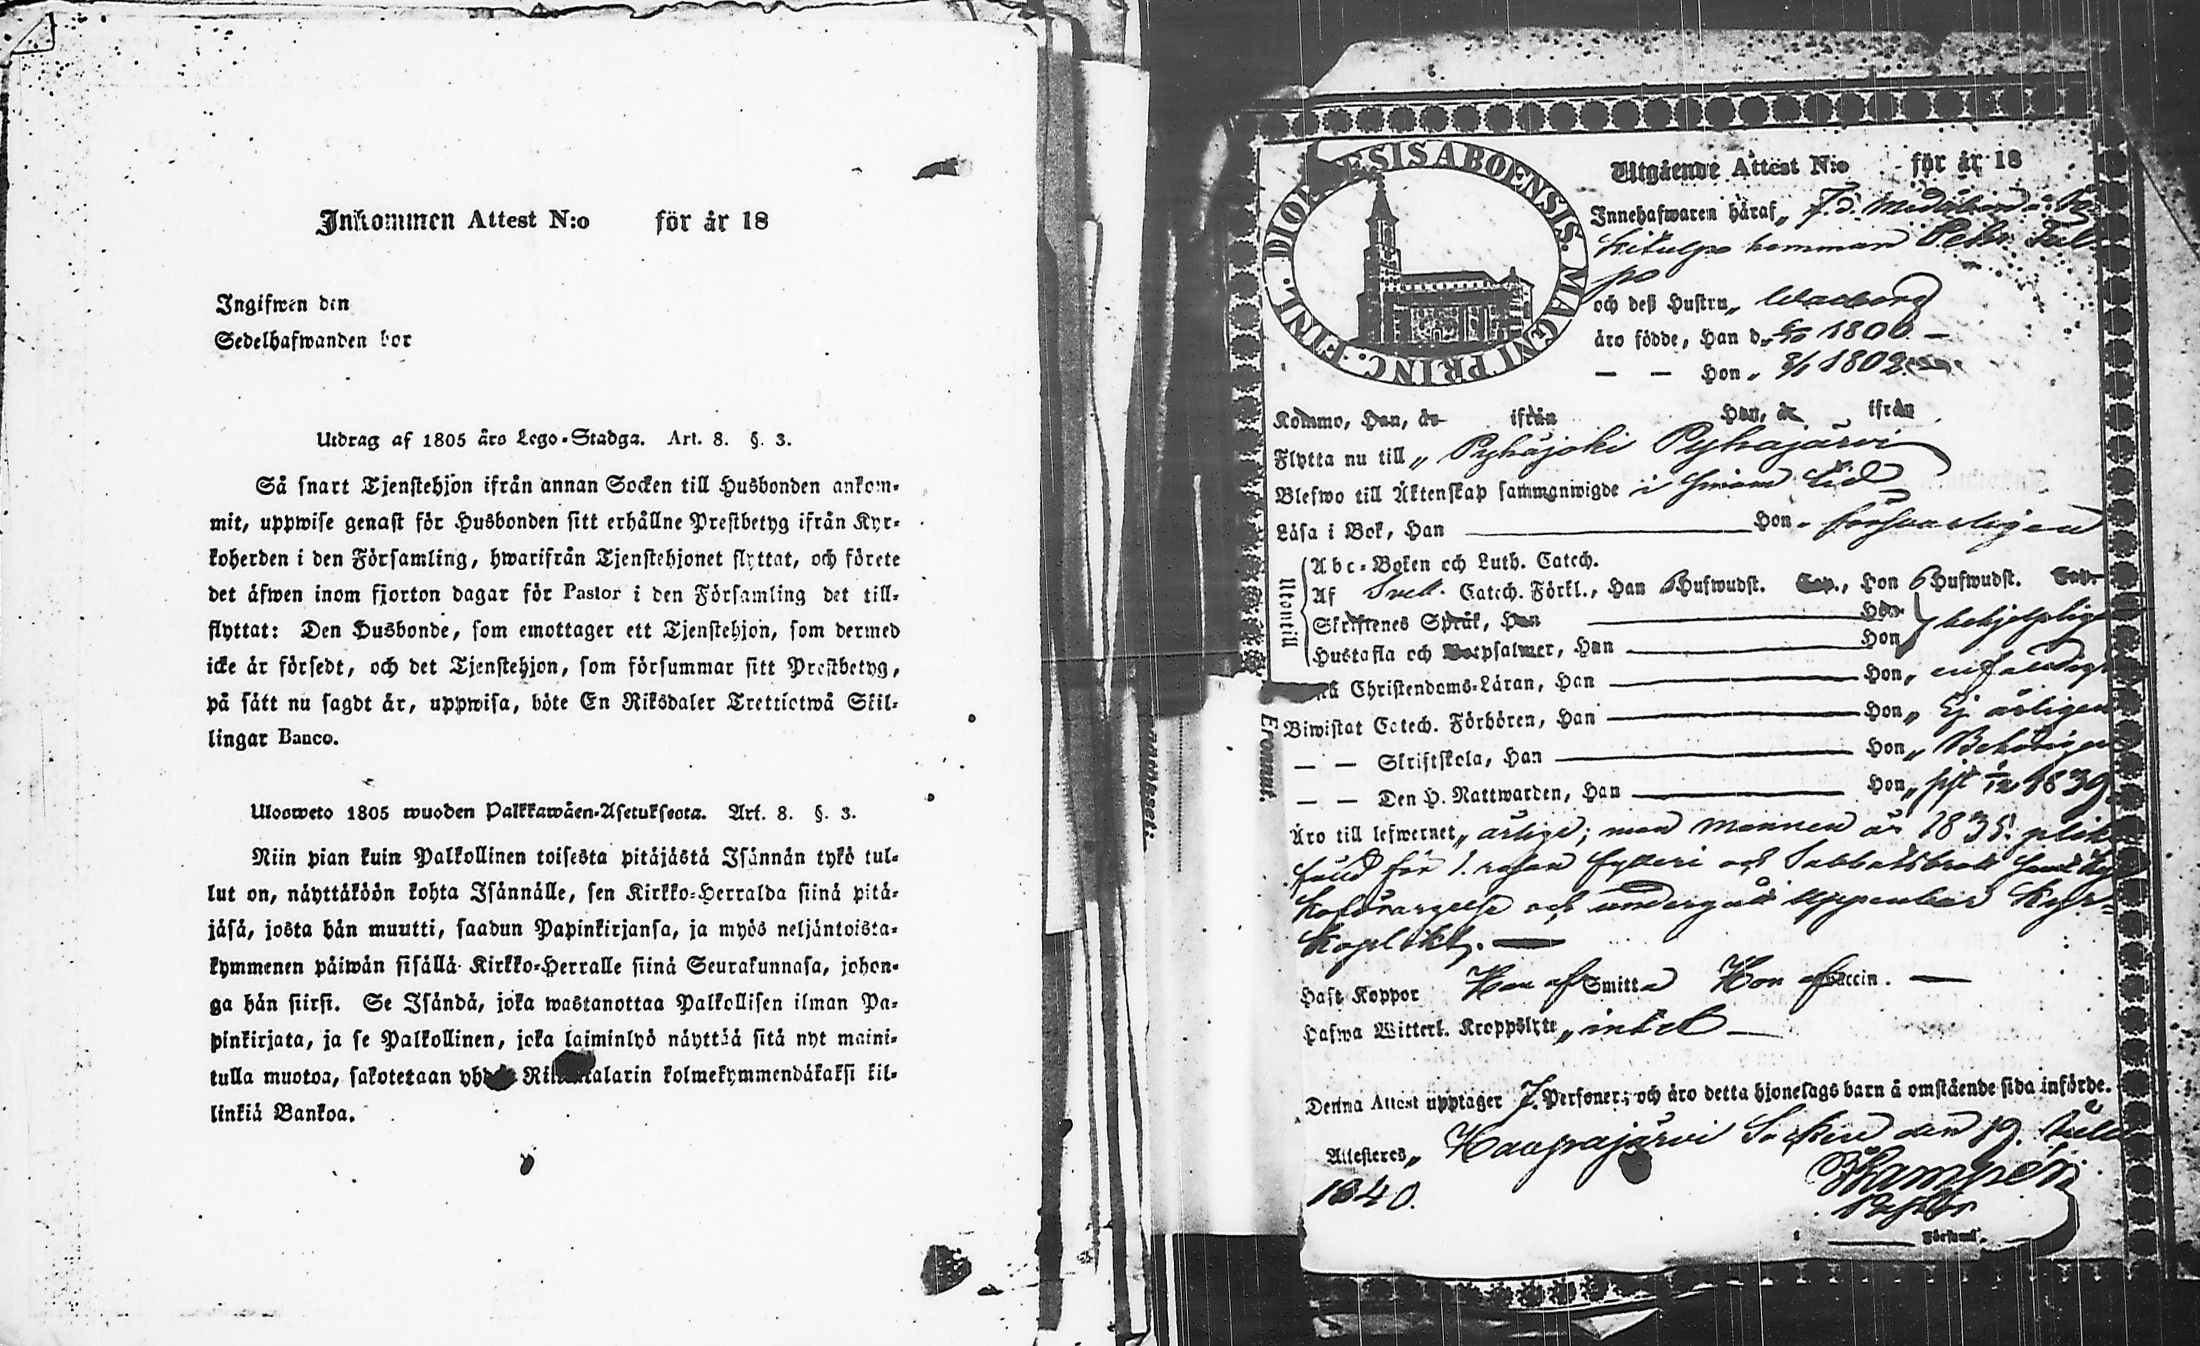 Inkommen Attest N:o för år 18
Ingifwen den
Sedelhafwanden bor
Utdrag af 1805 års Lego-Stadga. Art. 8. §. 3.
Så snart Tjenstehjon ifrån annan Socken till Husbonden ankom-
mit, uppwise genast för Husbonden sitt erhållne Prestbetyg ifrån Kyr-
koherden i den Församling, hwarifrån Tjenstehjonet flyttat, och förete
det äfwen inom fjorton dagar för Pastor i den Församling det till-
flyttat: Den Husbonde, som emottager ett Tjenstehjon, som dermed
icke är försedt, och det Tjenstehjon, som försummar sitt Prestbetyg,
på sätt nu sagdt är, uppwisa, böte En Riksdaler Trettiotwå Skil-
lingar Banco.
Ulosweto 1805 wuoden Palkkawäen-Asetuksesta. Art. 8. §. 3.
Niin pian kuin Palkollinen toisesta pitäjästä Isännän tykö tul-
lut on, näyttäköön kohta Isännälle, sen Kirkko-Herralda siinä pitä-
jäsä, josta hän muutti, saadun Papinkirjansa, ja myös neljäntoista-
kymmenen päiwän sisällä Kirkko-Herralle siinä Seurakunnasa, johon-
ga hän siirsi. Se Isändä, joka wastanottaa Palkollisen ilman Pa-
pinkirjata, ja se Palkollinen, joka laiminlyö näyttää sitä nyt maini-
tulla muotoa, sakotetaan yhden Riikintalarin kolmekymmendäkaksi kil-
linkiä Bankoa.
FINL. DIOECESIS ABOENSIS. MAGNI PRINC.
Utgående Attest N:o för år 18
Innehafwaren häraf, F.d.
hemman Petr
po
och deß Hustru, Walborg
äro födde, Han d. 1800
— — Hon, 1802
Kommo, Han, år ifrån Hon, år ifrån
Flytta nu till, Pyhäjoki Pyhäjärvi
Blefwo till Äktenskap sammanwigde i sinom tid
Läsa i Bok, Han Hon, försvarligen
Utontill
Abc-Boken och Luth. Catech.
Af Sveb. Catech. Förkl., Han 6 Hufwudst. Cap., Hon 6 Hufwudst. Cap.
Skriftenes Språk, Han Hon
Hustafla och Botpsalmer, Han Hon
Christendoms-Läran, Han Hon,
Biwistat Catech. Förhören, Han Hon, Ej årligen
— — Skriftskola, Han Hon, Behörigen
— — Den H. Nattwarden, Han Hon, sist 1839
Äro till lefwernet, ärlige; men mannen är 1835
för 1. resan fylleri och Sabbatsbrott samt
och undergått Uppenbar Kyr-
koplikt.
Haft Koppor Han af Smitta Hon af Vaccin.
Hafwa Witterl. Kroppslyte, intet
Denna Attest upptager 7. Personer; och äro detta hjonelags barn å omstående sida införde.
Attesteres, Haapajärvi Socken den 19.
1840.
Pastor
Församl.
Eronnut.